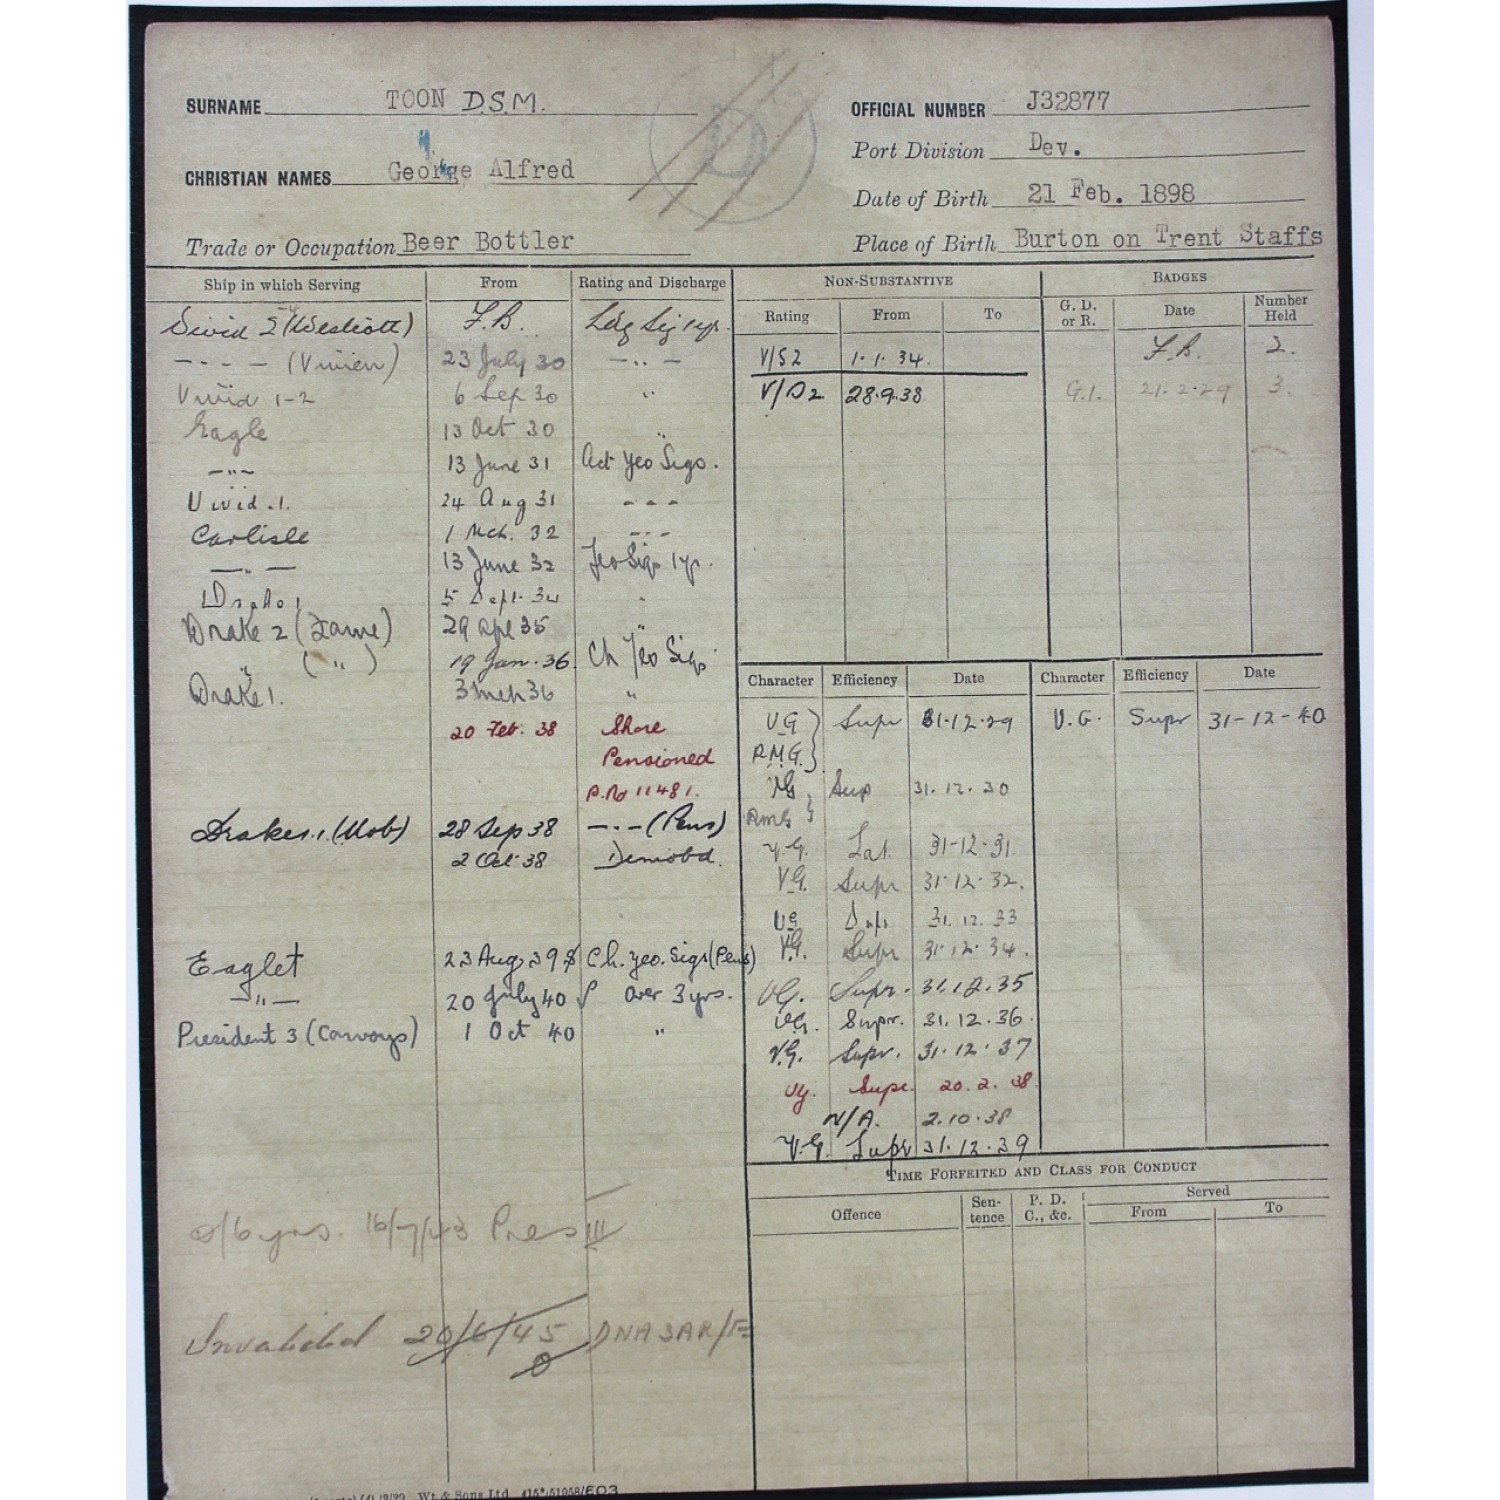 SURNAME TOON D.S.M.
OFFICIAL NUMBER J32877
Port Division Dev.
CHRISTIAN NAMES George Alfred
Date of Birth 21 Feb. 1898
Trade or Occupation Beer Bottler
Place of Birth Burton on Trent Staffs
Ship in which Serving From Rating and Discharge
Vivid 2 (Westcott) F.B. Ldg Sig 1yr.
— · · — (Vivien) 23 July 30 — · · —
Vivid 1-2 6 Sep 30 "
Eagle 13 Oct 30 "
— " — 13 June 31 Act Yeo Sigs.
Vivid .1. 24 Aug 31 - - -
Carlisle 1 Mch. 32 - - -
— " — 13 June 32 Yeo Sigs 1yr.
Drake 1 5 Sept. 34 "
Drake 2 (Fame) 29 Apl 35 "
" ( " ) 19 Jan. 36 Ch Yeo Sigs
Drake 1. 3 Mch 36 "
20 Feb. 38 Shore
Pensioned
P.No 11481.
Drake 1. (Mob) 28 Sep 38 — · — (Pens)
2 Oct 38 Demobd.
Eaglet 23 Aug 39 Ch. Yeo. Sigs (Pens)
— " — 20 July 40 over 3 yrs.
President 3 (Convoys) 1 Oct 40 "
o/6 yrs. 16/7/43 Pres III
Invalided 20/6/45 DNASAR/F
0
NON-SUBSTANTIVE
Rating From To
V/S2 1.1.34.
V/S2 28.9.38
BADGES
G. D. or R. Date Number Held
F.B. 2.
G.1. 21.2.29 3.
Character Efficiency Date Character Efficiency Date
V.G. Supr 31.12.29 V.G. Supr 31-12-40
R.M.G.
VG Sup 31.12.30
RMG
V.G. Sat 31-12-31
V.G. Supr 31.12.32.
VG Supr 31.12.33
V.G. Supr 31.12.34.
VG. Supr. 31.12.35
VG. Supr. 31.12.36.
V.G. Supr. 31.12.37
VG. Supr. 20.2.38.
N/A. 2.10.38
V.G. Supr 31.12.39
TIME FORFEITED AND CLASS FOR CONDUCT
Offence Sen-tence P. D. C., &c. Served
From To
Wt. & Sons Ltd. 415*/51058/E03